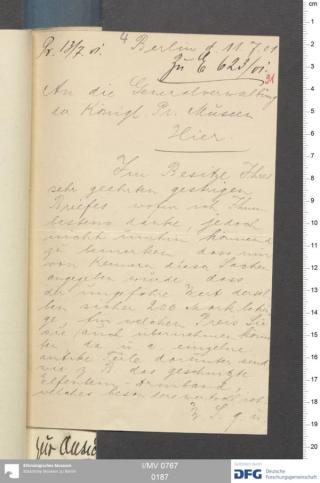 Pr. 13/7 01. 4 Berlin d. 11.7.01
Zu E 623/01.
An die Generalverwaltung
der Königl. Pr. Museen
Hier.
Im Besitze Ihres
sehr geehrten gestrigen
Briefes wofür ich Ihnen
bestens danke, jedoch
nicht umhin könnend
zu bemerken dass mir
von Kennern dieser Sachen
angegeben wurde dass
der ungefähre Wert dersel
ben sicher 200 Mark betra
ge für welchen Preis Sie
sie auch übernehmen könn
ten da ja einzelne
antike Teile darunter sind
wie z. B. das geschnitzte
Elfenbein-Armband,
welches besonders wertvoll ist.
zur Ansic
Ethnologisches Museum
Staatliche Museen zu Berlin
I/MV 0767
0187
gefördert durch
DFG Deutsche
Forschungsgemeinschaft
cm
1
2
3
4
5
6
7
8
9
10
11
12
13
14
15
16
17
18
19
20